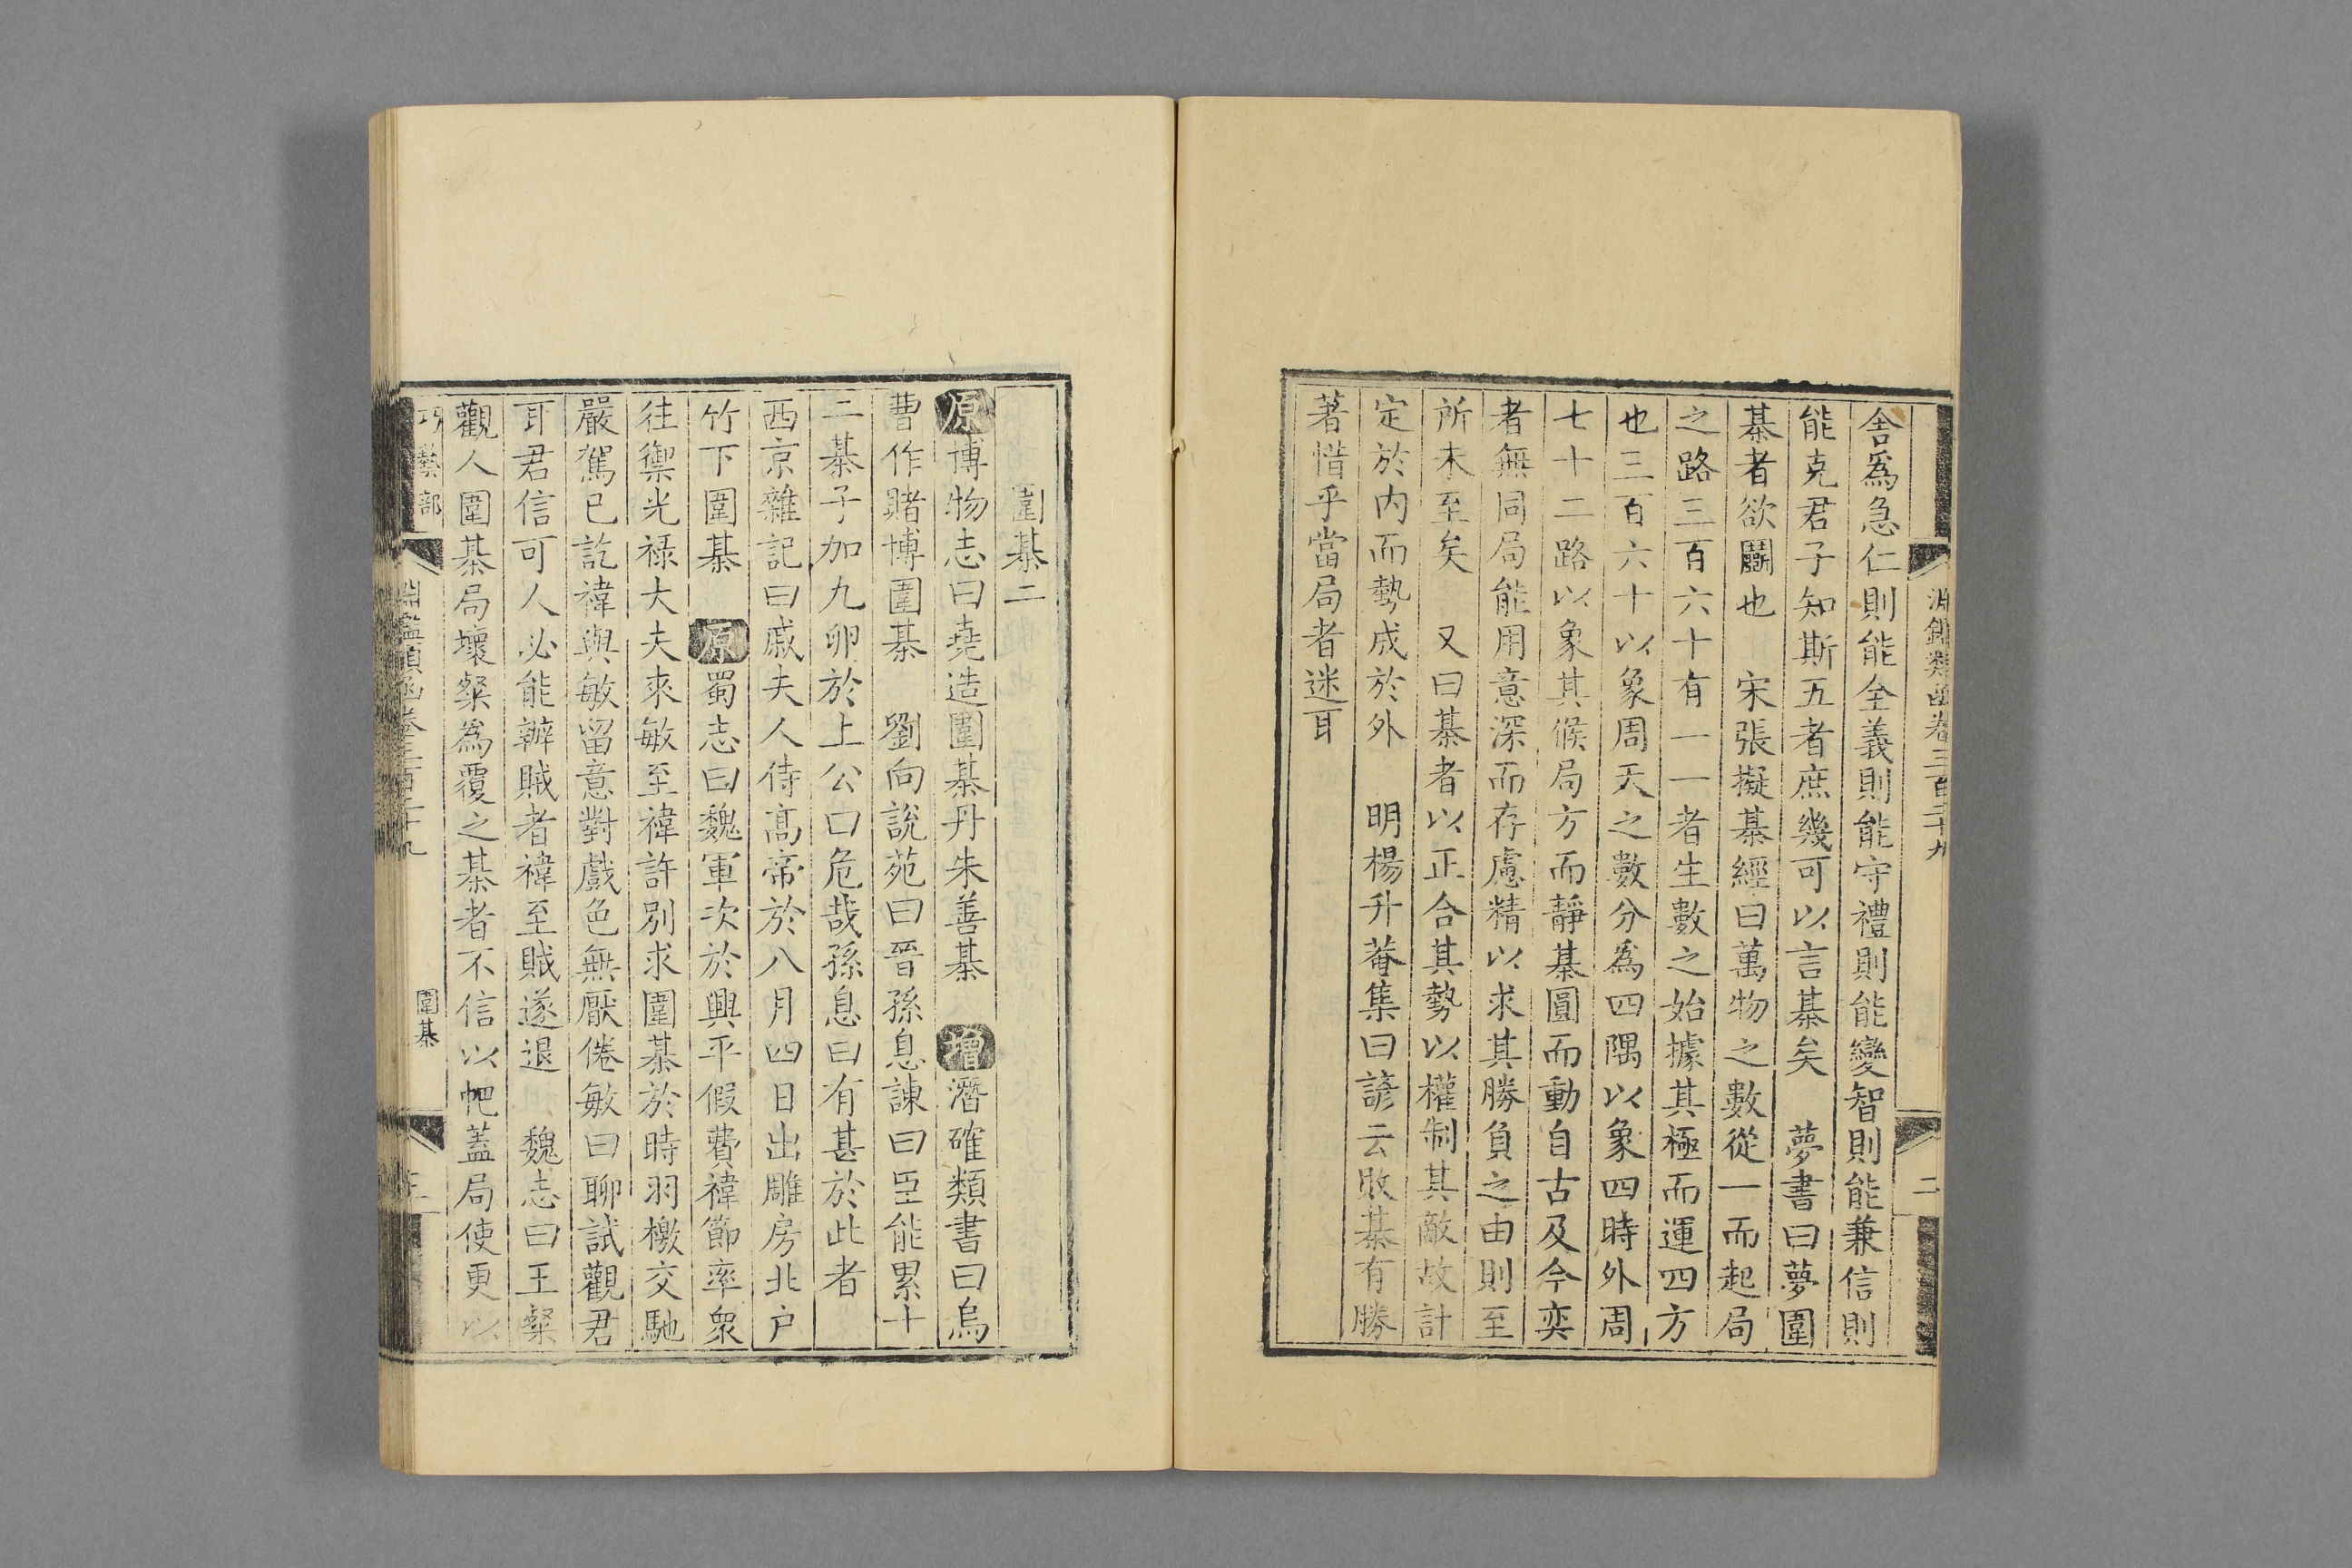 淵鑑類函卷三百二十九
二
舎爲急仁則能全義則能守禮則能變智則能兼信則
能克君子知斯五者庶幾可以言棊矣　夢書曰夢圍
棊者欲鬭也　宋張擬棊經曰萬物之數從一而起局
之路三百六十有一一者生數之始據其極而運四方
也三百六十以象周天之數分爲四隅以象四時外周
七十二路以象其候局方而靜棊圓而動自古及今奕
者無同局能用意深而存慮精以求其勝負之由則至
所未至矣　又曰棊者以正合其勢以權制其敵故計
定於内而勢成於外　明楊升菴集曰諺云敗棊有勝
著惜乎當局者迷耳
圍棊二
原博物志曰堯造圍棊丹朱善棊　增潛確類書曰烏
曹作賭博圍棊　劉向說苑曰晉孫息諫曰臣能累十
二棊子加九卵於上公曰危哉孫息曰有甚於此者
西京雜記曰戚夫人侍高帝於八月四日出雕房北户
竹下圍棊　原蜀志曰魏軍次於興平假費禕節率衆
往禦光禄大夫來敏至禕許別求圍棊於時羽檄交馳
嚴駕已訖禕與敏留意對戲色無厭倦敏曰聊試觀君
耳君信可人必能辦賊者禕至賊遂退　魏志曰王粲
觀人圍棊局壞粲爲覆之棊者不信以帊蓋局使更以
巧藝部
淵鑑類函卷三百二十九
圍棊
三